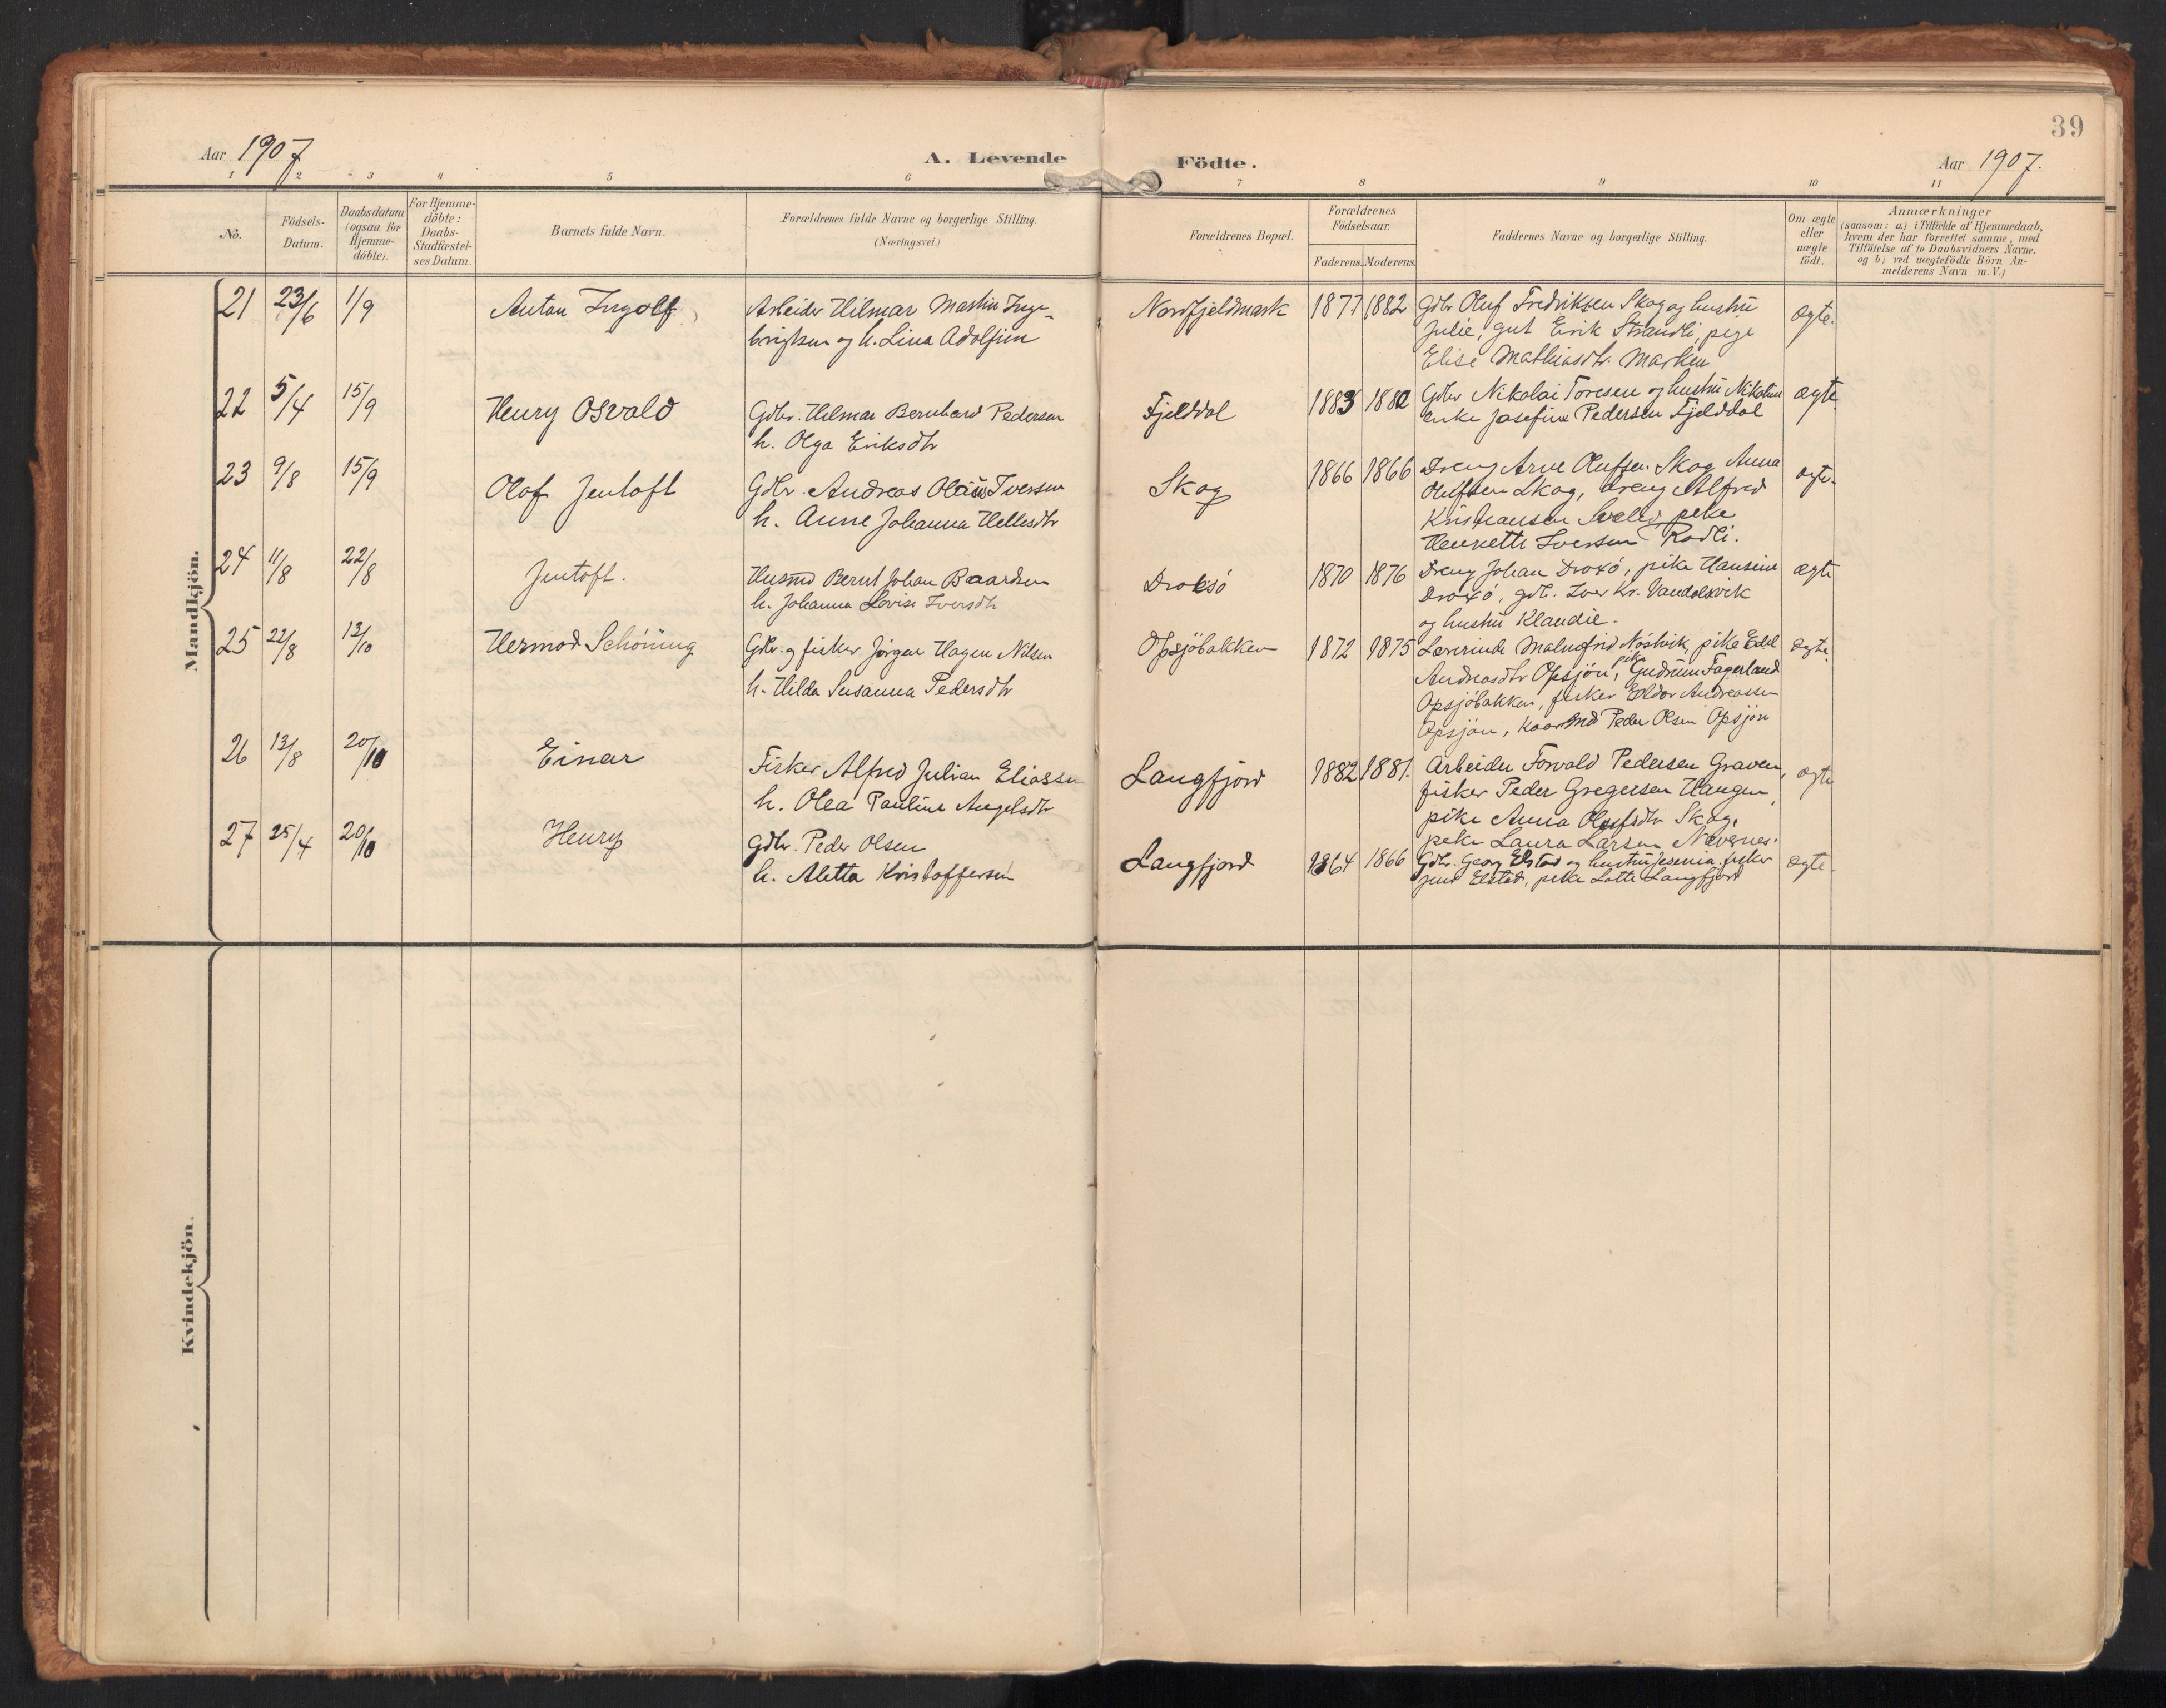 39
Aar 1907
A. Levende Födte.
Aar 1907.
1 2 3 4 5 6 7 8 9 10 11
Nö.
Födsels-Datum.
Daabsdatum (ogsaa for Hjemme-döbte).
For Hjemme-döbte: Daabs-Stadfæstel-ses Datum.
Barnets fulde Navn.
Forældrenes fulde Navne og borgerlige Stilling.
(Næringsvei.)
Forældrenes Bopæl.
Forældrenes Födselsaar.
Faderens. Moderens.
Faddernes Navne og borgerlige Stilling.
Om ægte eller uægte födt.
Anmærkninger
(saasom: a) i Tilfælde af Hjemmedaab,
hvem der har forrettet samme, med
Tilföielse af to Daabsvidners Navne,
og b) ved uægtefödte Börn An-
melderens Navn m. V.)
Mandkjön.
21 23/6 1/9 Anton Ingolf Arbeider Hilmar Martin Inge- Nordfjeldmark 1877 1882 Gdbr Oluf Fredriksen Skog og hustru ægte.
brigtsen og h. Lina Adolfsen Julie, gut Erik Strandli, pige
Elise Mathiasdtr. Marken
22 5/4 15/9 Henry Osvald Gdbr. Hilmar Bernhard Pedersen Fjelddal 1883 1882 Gdbr Nikolai Toresen og hustru Nikoline ægte
h. Olga Eriksdtr enke Josefine Pedersen Fjelddal
23 9/8 15/9 Olaf Jentoft Gdbr. Andreas Olaus Iversen Skog 1866 1866 Dreng Arne Olufsen Skog Anna ægte.
h. Anne Johanna Hellesdtr Olufsen Skog, dreng Alfred
Kristiansen peke
Henrette Iversen Rodli.
24 11/8 22/8 Jentoft. Husmd Bernt Johan Baardsen Droksö 1870 1876 Dreng Johan Droxö, pike Hansine ægte
h. Johanna Lovise Iversdtr Droxö, gdb. Iver Kr. Vandalsvik
og hustru Klaudie.
25 22/8 13/10 Hermod Schöning Gdbr. og fisker Jörgen Hagen Nilsen Opsjöbakken 1872 1875 Lærerinde Malmfrid Nöstvik, pike Edel ægte.
h. Hilda Susanna Pedersdtr Andreasdtr Opsjön, pike Gudrun Fagerland
Opsjöbakken, fisker Eldor Andreassen
Opsjön, Kaarmd Peder Olsen Opsjön
26 13/8 20/10 Einar Fisker Alfred Julian Eliassen Langfjord 1882 1881. Arbeider Torvald Pedersen Graven, ægte
h. Olea Pauline Angelsdtr fisker Peder Gregersen Haugen,
pike Anna Olufsdtr Skog,
peke Laura Larsen Nevernes.
27 25/4 20/10 Henry Gdbr. Peder Olsen Langfjord 1864 1866 Gdbr. Georg Elstad og hustru Jesenia, fisker ægte.
h. Aletta Kristoffersen Elstad, peke Lotte Langfjord
Kvindekjön.